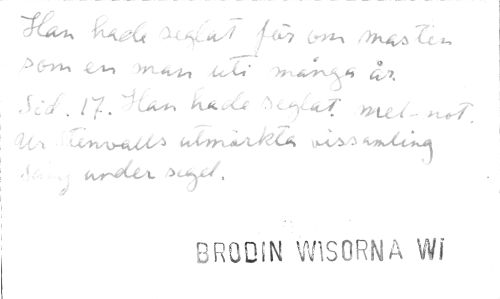 Han hade seglat för om masten
som en man uti många år.
Sid. 17. Han hade seglat. mel-not.
Ur Stenvalls utmärkta vissamling
Sång under segel.
BRODIN WISORNA Wi